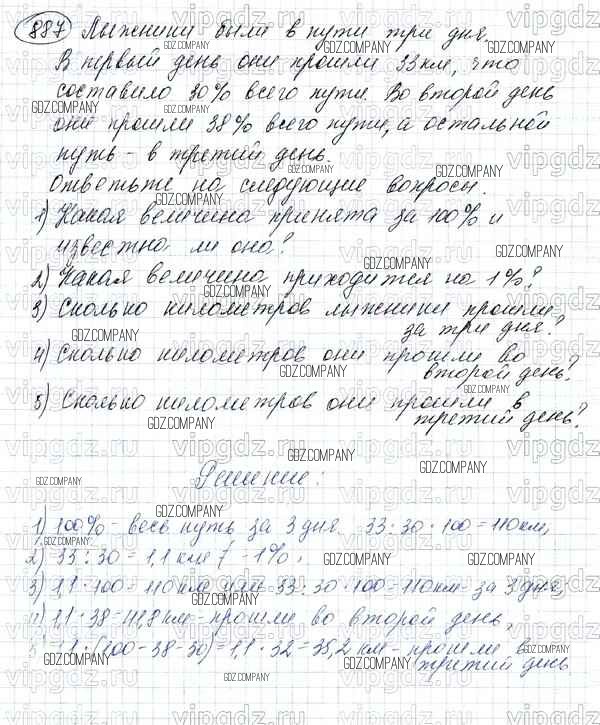 887 Лыжники были в пути три дня.
В первый день они прошли 33 км, что
составило 30% всего пути. Во второй день
они прошли 38% всего пути, а остальной
путь - в третий день.
Ответьте на следующие вопросы.
1) Какая величина принята за 100% и
известна ли она?
2) Какая величина приходится на 1%?
3) Сколько километров лыжники прошли
за три дня?
4) Сколько километров они прошли во
второй день?
5) Сколько километров они прошли в
третий день?
Решение:
1) 100% - весь путь за 3 дня 33:30·100=110км,
2) 33:30=1,1 км - 1%,
3) 1,1·100=110км или 33:30·100=110км - за 3 дня,
4) 1,1·38=41,8 км - прошли во второй день,
(100-38-30)=1,1·32=35,2 км - прошли в
третий день